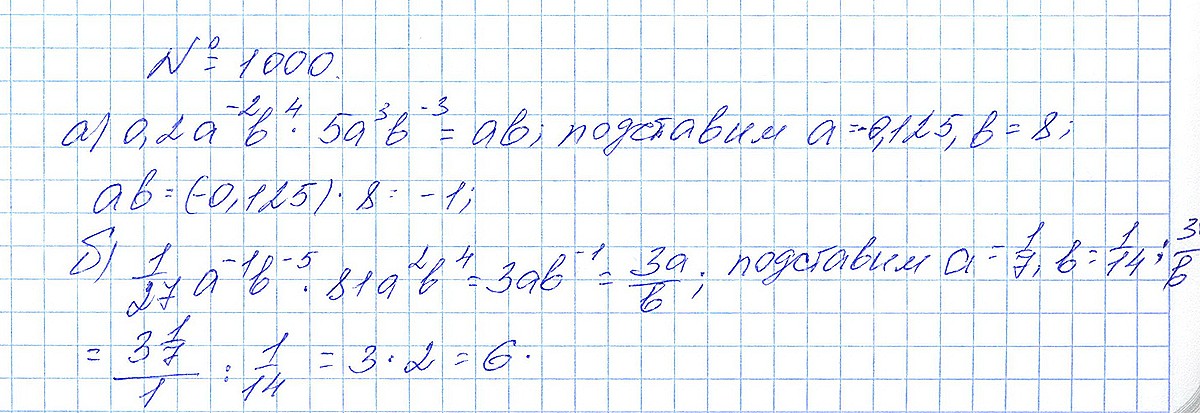 № 1000.
а) 0,2a⁻²b⁴ · 5a³b⁻³ = ab; подставим a = -0,125, b = 8;
ab = (-0,125) · 8 = -1;
б) 1/27 a⁻¹b⁻⁵ · 81a²b⁴ = 3ab⁻¹ = 3a/b; подставим a = 1/7, b = 1/14; 3a/b
= 3 1/7 / 1 : 1/14 = 3 · 2 = 6.